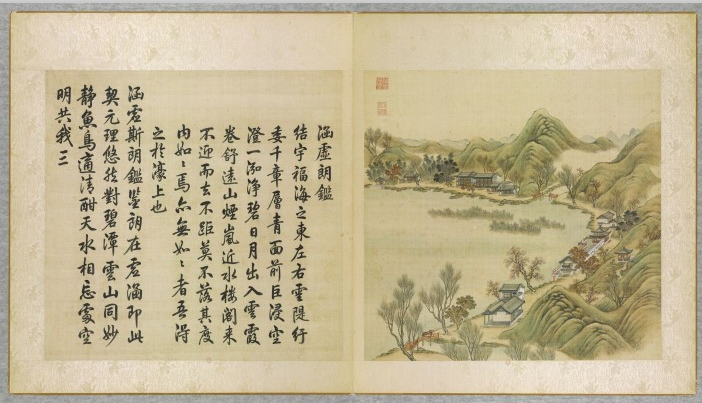 涵虛朗鑑
結宇福海之東左右雲隄紆
委千章層青面前巨浸空
澄一泓淨碧日月出入雲霞
卷舒遠山煙嵐近水樓閣來
不迎而去不距莫不落其度
內如々焉亦無如々者吾得
之於濠上也
涵虛斯朗鑑鑒朗在虛涵即此
契元理悠然對碧潭雲山同妙
靜魚鳥適清酣天水相忘處空
明共我三